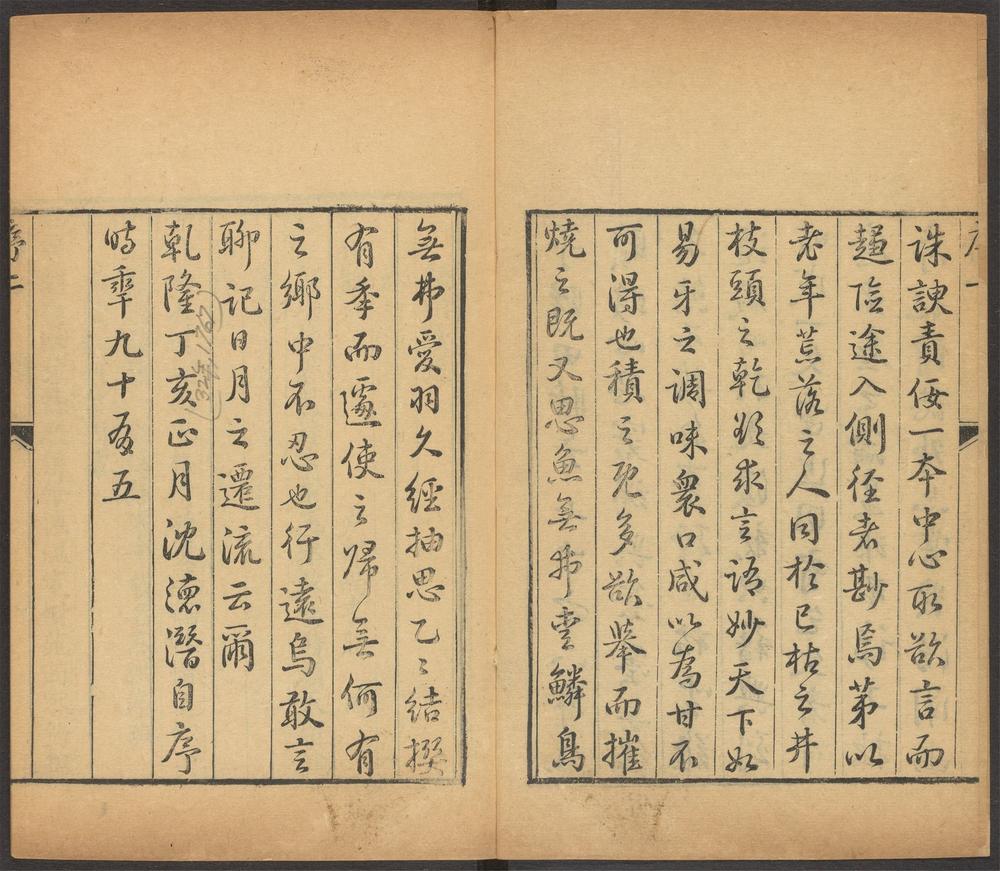 序一
誅諛責佞一本中心所欲言而
趨險途入側徑者尠焉苐以
老年荒落之人同於已枯之井
枝頭之乾欲求言語妙天下如
易牙之調味衆口咸以為甘不
可得也積之既多欲舉而摧
燒之既又思魚無弗愛鱗鳥
無弗愛羽久經抽思乙乙結撰
有秊而遽使之歸無何有
之鄉中不忍也行遠烏敢言
聊記日月之遷流云爾
乾隆丁亥正月沈德潛自序
(32年,1767)
時年九十有五
序二